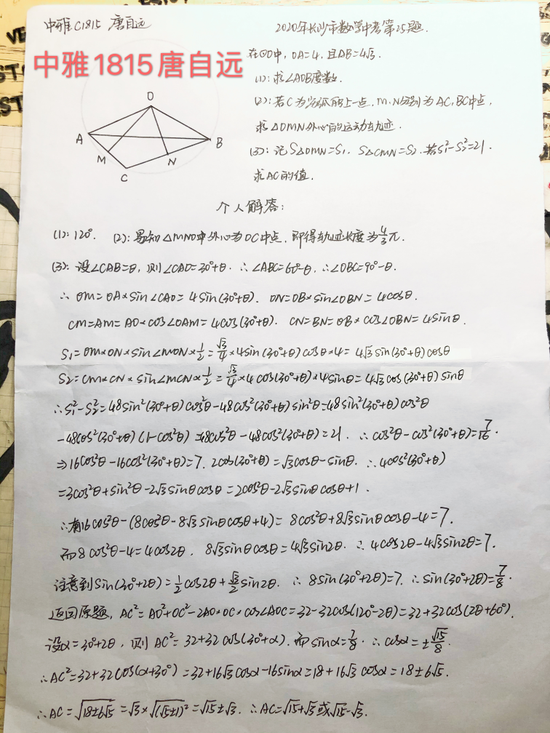 中雅C1815 唐自远
2020年长沙市数学中考第25题.
中雅1815唐自远
在⊙O中, OA=4. 且AB=4√3.
(1): 求∠AOB度数.
(2): 若C为劣弧AB上一点. M.N分别为AC,BC中点.
求△OMN外心的运动轨迹.
(3): 记S△OMN=S₁. S△CMN=S₂. 若S₁²-S₂²=21.
求AC的值.
O
A
B
M
N
C
个人解答:
(1): 120°. (2): 易知△MNO中外心为OC中点. 即得轨迹长度为4/3π.
(3): 设∠CAB=θ, 则∠CAO=30°+θ. ∴∠ABC=60°-θ. ∴∠OBC=90°-θ.
∴OM=OA×sin∠CAO=4sin(30°+θ). ON=OB×sin∠OBN=4cosθ.
CM=AM=AO×cos∠OAM=4cos(30°+θ). CN=BN=OB×cos∠OBN=4sinθ.
S₁=OM×ON×sin∠MON×1/2=√3/4×4sin(30°+θ)cosθ×4=4√3sin(30°+θ)cosθ
S₂=CM×CN×sin∠MCN×1/2=√3/4×4cos(30°+θ)×4sinθ=4√3cos(30°+θ)sinθ
∴S₁²-S₂²=48sin²(30°+θ)cos²θ-48cos²(30°+θ)sin²θ=48sin²(30°+θ)cos²θ
-48cos²(30°+θ)(1-cos²θ)=48cos²θ-48cos²(30°+θ)=21. ∴cos²θ-cos²(30°+θ)=7/16.
⇒16cos²θ-16cos²(30°+θ)=7. 2cos(30°+θ)=√3cosθ-sinθ. ∴4cos²(30°+θ)
=3cos²θ+sin²θ-2√3sinθcosθ=2cos²θ-2√3sinθcosθ+1.
∴有16cos²θ-(8cos²θ-8√3sinθcosθ+4)=8cos²θ+8√3sinθcosθ-4=7.
而8cos²θ-4=4cos2θ. 8√3sinθcosθ=4√3sin2θ. ∴4cos2θ+4√3sin2θ=7.
注意到sin(30°+2θ)=1/2cos2θ+√3/2sin2θ. ∴8sin(30°+2θ)=7. ∴sin(30°+2θ)=7/8.
返回原题, AC²=AO²+OC²-2AO×OC×cos∠AOC=32-32cos(120°-2θ)=32+32cos(2θ+60°).
设α=30°+2θ, 则AC²=32+32cos(30°+α). 而sinα=7/8. ∴cosα=±√15/8.
∴AC²=32+32cos(α+30°)=32+16√3cosα-16sinα=18+16√3cosα=18±6√5.
∴AC=√(18±6√5)=√3×√(√5±1)²=√15±√3. ∴AC=√15+√3或√15-√3.